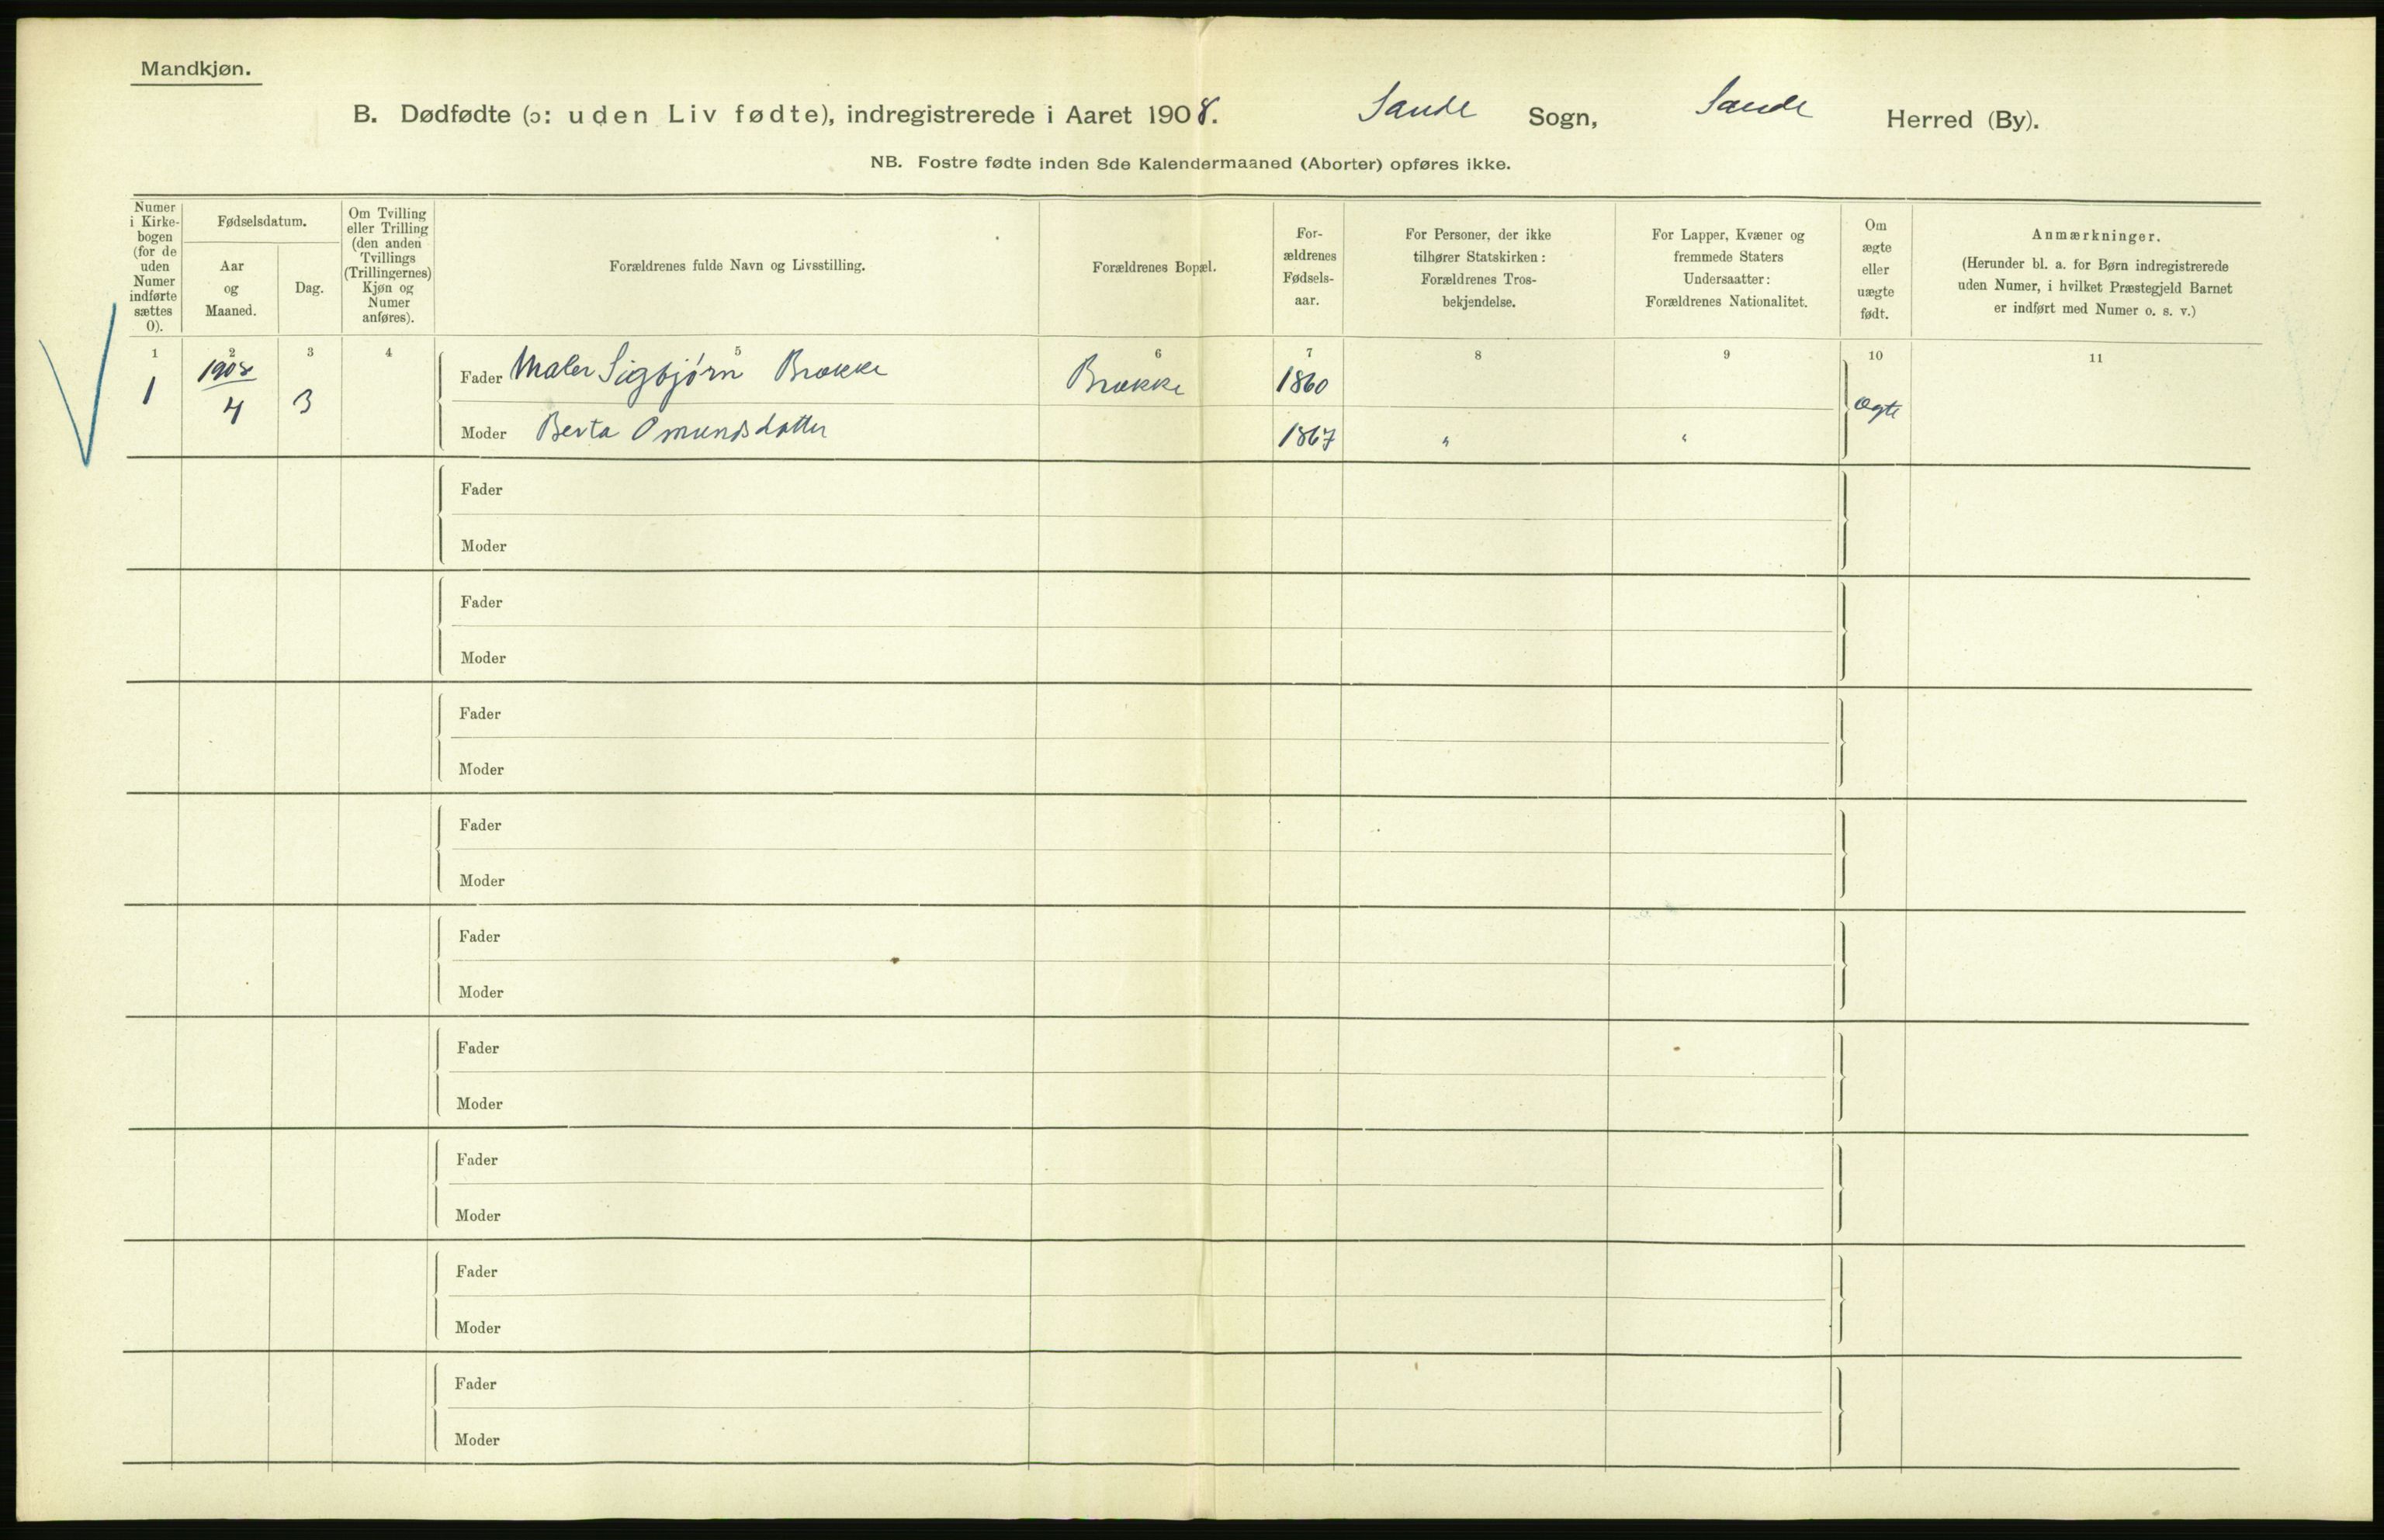 Mandkjøn.
B. Dødfødte (ɔ: uden Liv fødte), indregistrerede i Aaret 1908. Sande Sogn, Sande Herred (By).
NB. Fostre fødte inden 8de Kalendermaaned (Aborter) opføres ikke.
Numer
i Kirke-
bogen
(for de
uden
Numer
indførte
sættes
0).
Fødselsdatum.
Aar
og
Maaned.
Dag.
Om Tvilling
eller Trilling
(den anden
Tvillings
(Trillingernes)
Kjøn og
Numer
anføres).
Forældrenes fulde Navn og Livsstilling.
Forældrenes Bopæl.
For-
ældrenes
Fødsels-
aar.
For Personer, der ikke
tilhører Statskirken:
Forældrenes Tros-
bekjendelse.
For Lapper, Kvæner og
fremmede Staters
Undersaatter:
Forældrenes Nationalitet.
Om
ægte
eller
uægte
født.
Anmærkninger.
(Herunder bl. a. for Børn indregistrerede
uden Numer, i hvilket Præstegjeld Barnet
er indført med Numer o. s. v.)
1 2 3 4 5 6 7 8 9 10 11
1 1908/4 3 Fader Maler Sigbjørn Brække Brække 1860 ægte
Moder Berta Omundsdatter 1867 " "
Fader
Moder
Fader
Moder
Fader
Moder
Fader
Moder
Fader
Moder
Fader
Moder
Fader
Moder
Fader
Moder
Fader
Moder